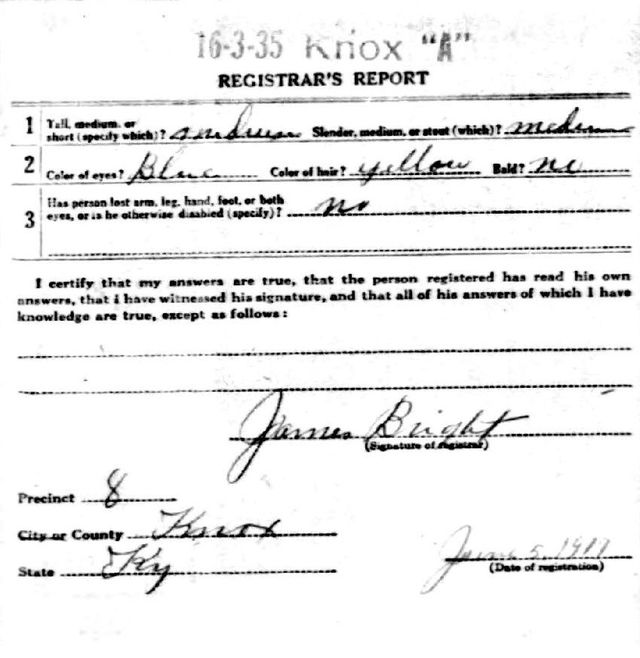 16-3-35 Knox "A"
REGISTRAR'S REPORT
1 Tall, medium, or short (specify which)? medium Slender, medium, or stout (which)? medium
2 Color of eyes? Blue Color of hair? yellow Bald? no
3 Has person lost arm, leg, hand, foot, or both eyes, or is he otherwise disabled (specify)? no
I certify that my answers are true, that the person registered has read his own
answers, that I have witnessed his signature, and that all of his answers of which I have
knowledge are true, except as follows:
James Bright
(Signature of registrar)
Precinct 8
City or County Knox
State Ky
June 5, 1917
(Date of registration)